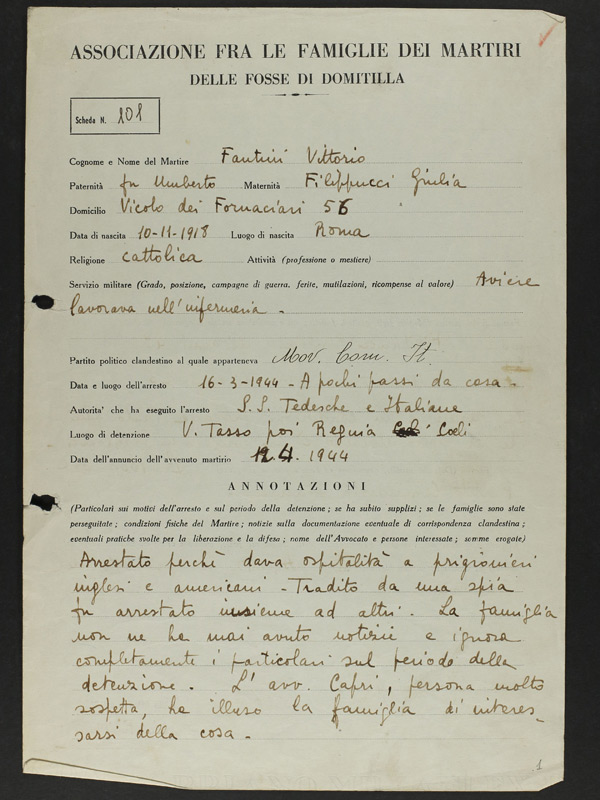 ASSOCIAZIONE FRA LE FAMIGLIE DEI MARTIRI
DELLE FOSSE DI DOMITILLA
Scheda N. 101
Cognome e Nome del Martire Fantini Vittorio
Paternità fu Umberto Maternità Filippucci Giulia
Domicilio Vicolo dei Fornaciari 56
Data di nascita 10-11-1918 Luogo di nascita Roma
Religione cattolica Attività (professione o mestiere)
Servizio militare (Grado, posizione, campagne di guerra, ferite, mutilazioni, ricompense al valore) Aviere
lavorava nell'infermeria -
Partito politico clandestino al quale apparteneva Mov. Com. It.
Data e luogo dell'arresto 16-3-1944 - A pochi passi da casa -
Autorita' che ha eseguito l'arresto S.S. Tedesche e Italiane
Luogo di detenzione V. Tasso poi Regina Coeli
Data dell'annuncio dell'avvenuto martirio 12.4.1944
ANNOTAZIONI
(Particolari sui motivi dell'arresto e sul periodo della detenzione; se ha subito supplizi; se le famiglie sono state
perseguitate; condizioni fisiche del Martire; notizie sulla documentazione eventuale di corrispondenza clandestina;
eventuali pratiche svolte per la liberazione e la difesa; nome dell'Avvocato e persone interessate; somme erogate)
Arrestato perchè dava ospitalità a prigionieri
inglesi e americani - Tradito da una spia
fu arrestato insieme ad altri. La famiglia
non ne ha mai avuto notizie e ignora
completamente i particolari sul periodo della
detenzione. L'avv. Capri, persona molto
sospetta, ha illuso la famiglia di interes-
sarsi della cosa -
1